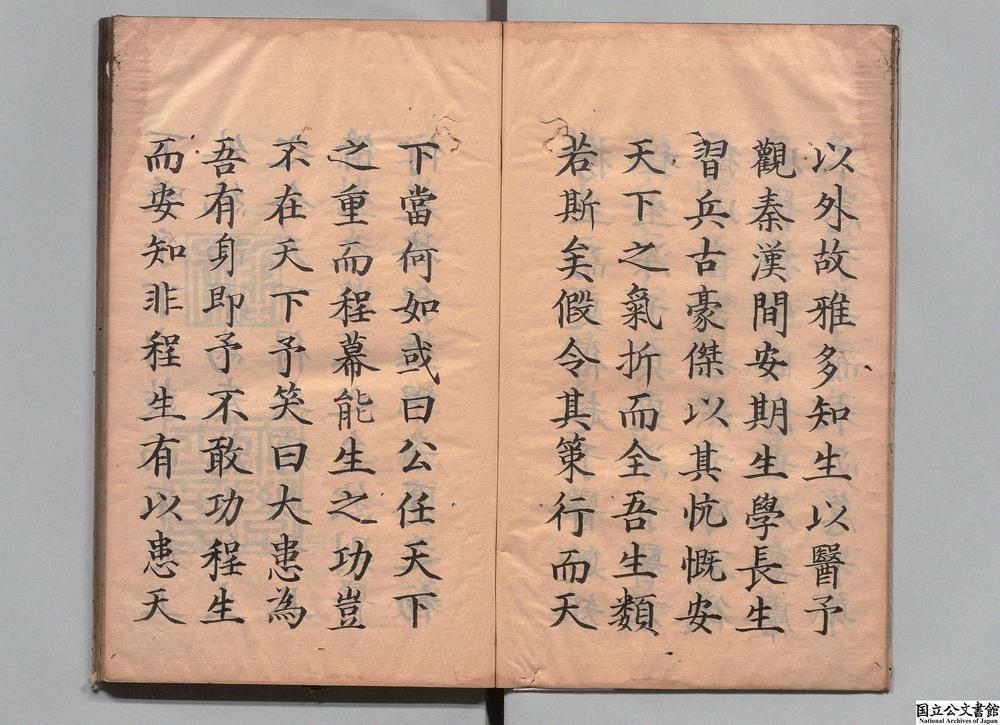 以外故雅多知生以醫予
觀秦漢間安期生學長生
習兵古豪傑以其忼慨安
天下之氣折而全吾生類
若斯矣假令其策行而天
下當何如或曰公任天下
之重而程幕能生之功豈
不在天下予笑曰大患為
吾有身即予不敢功程生
而安知非程生有以患天
国立公文書館
National Archives of Japan